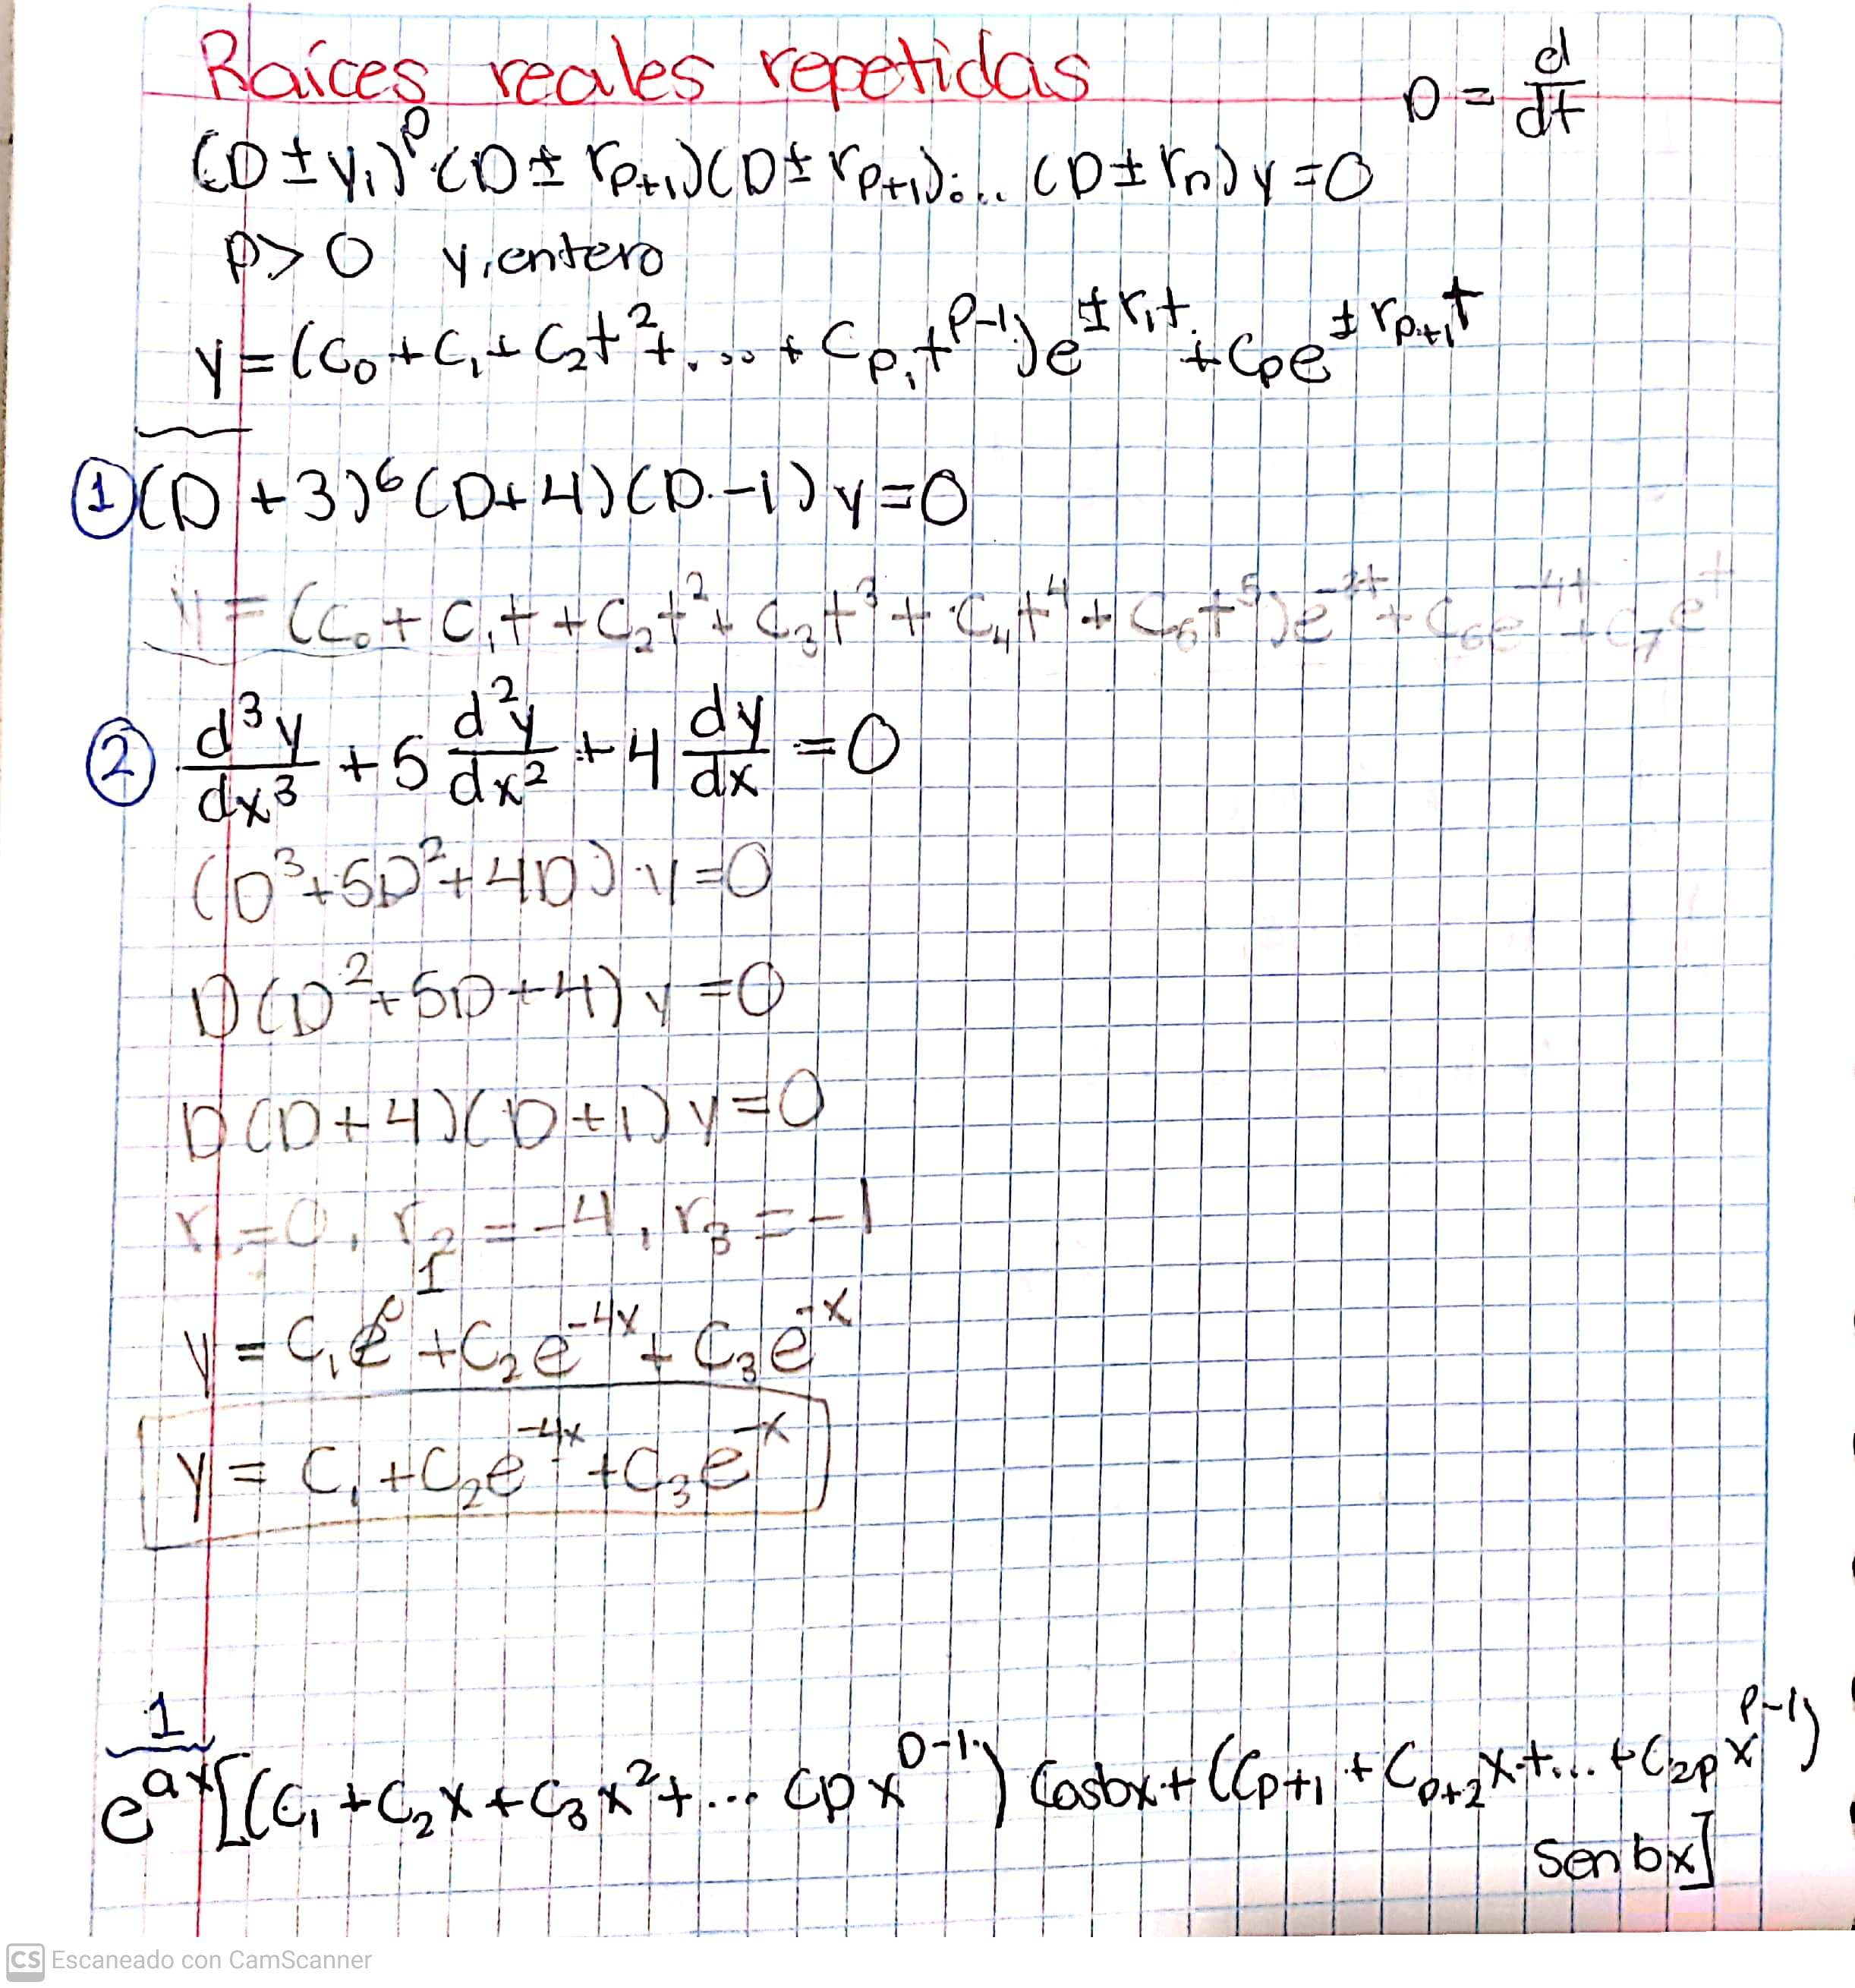 Raíces reales repetidas
D = d/dt
(D ± y₁)ᵖ (D ± rₚ₊₁)(D ± rₚ₊₁)... (D ± rₙ) y = 0
p > 0 y, entero
y = (C₀ + C₁ + C₂t² + ... + Cₚ,tᵖ⁻¹) e^(±r₁t) + Cₚe^(±rₚ₊₁t)
① (D + 3)⁶ (D + 4)(D - 1) y = 0
y = (C₀ + C₁t + C₂t² + C₃t³ + C₄t⁴ + C₅t⁵) e^(-3t) + C₆e^(-4t) + C₇e^t
② d³y/dx³ + 5 d²y/dx² + 4 dy/dx = 0
(D³ + 5D² + 4D) y = 0
D (D² + 5D + 4) y = 0
D (D + 4)(D + 1) y = 0
r₁ = 0, r₂ = -4, r₃ = -1
1
y = C₁e⁰ + C₂e^(-4x) + C₃e^(-x)
y = C₁ + C₂e^(-4x) + C₃e^(-x)
1
e^(ax) [(C₁ + C₂x + C₃x² + ... Cp x^(p-1)) Cosbx + (Cp+1 + Cp+2 x + ... + C2p x^(p-1))
Sen bx]
CS Escaneado con CamScanner